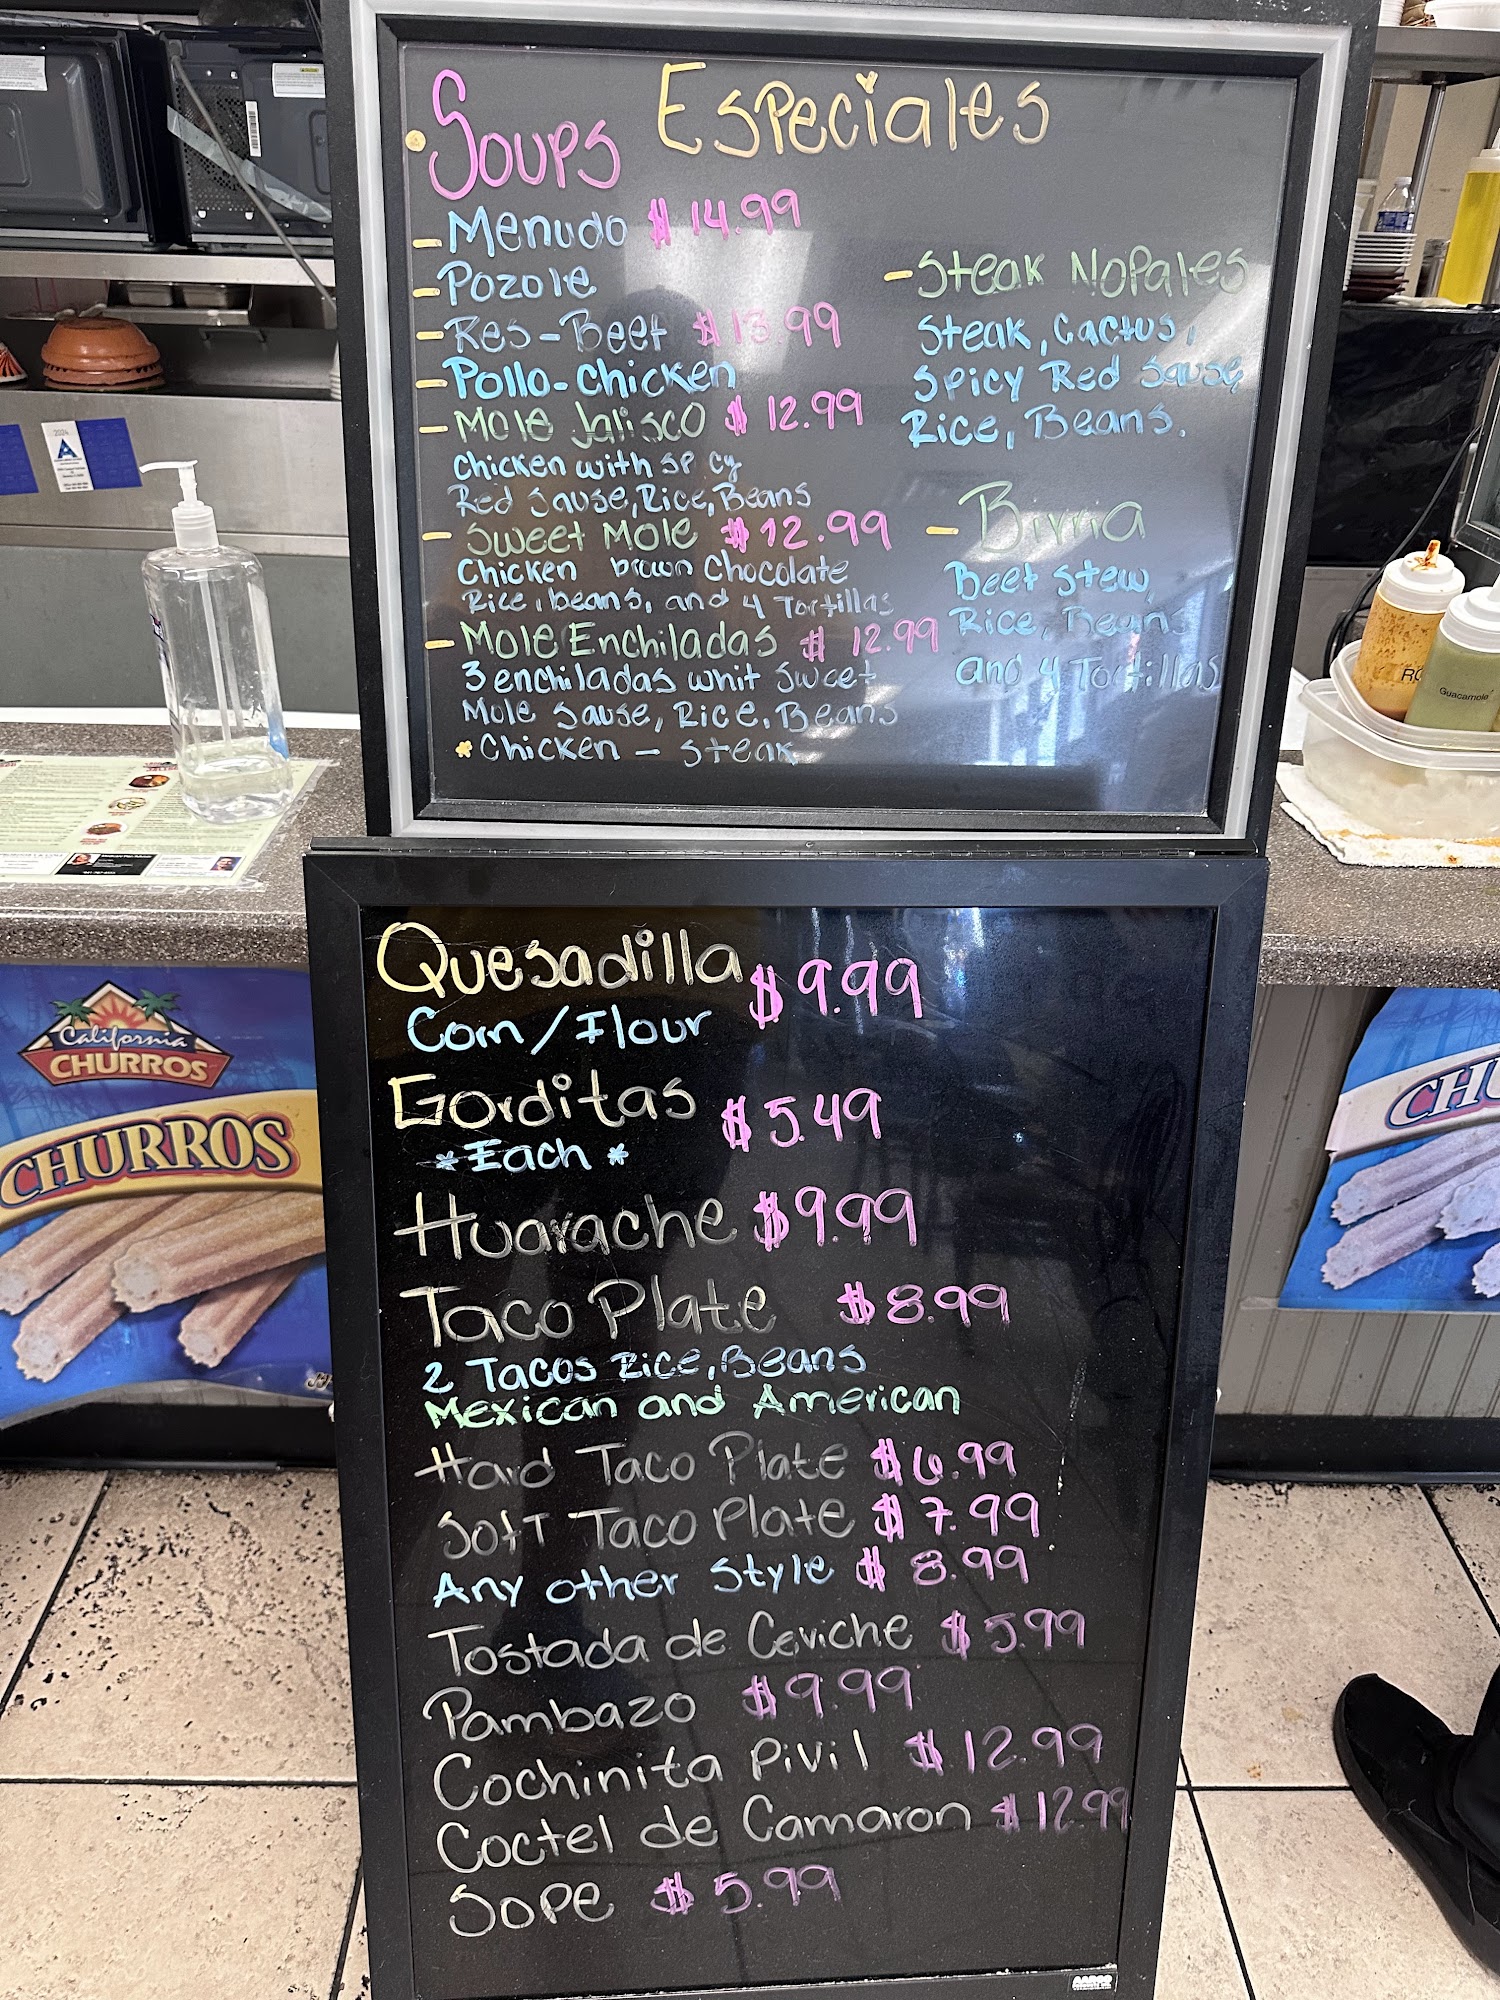 Soups Especiales
- Menudo $14.99
- Pozole
- Res-Beef $13.99
- Pollo-Chicken
- Mole Jalisco $12.99
Chicken with spicy
Red Sause, Rice, Beans
- Sweet Mole $12.99
Chicken brown Chocolate
Rice, beans, and 4 Tortillas
- Mole Enchiladas $12.99
3 enchiladas whit sweet
Mole Sause, Rice, Beans
* Chicken - Steak
- Steak Nopales
Steak, Cactus,
Spicy Red Sause
Rice, Beans.
- Birria
Beef stew,
Rice, Beans
and 4 Tortillas
Quesadilla $9.99
Corn/Flour
Gorditas $5.49
*Each*
Huarache $9.99
Taco Plate $8.99
2 Tacos Rice, Beans
Mexican and American
Hard Taco Plate $6.99
Soft Taco Plate $7.99
Any other Style $8.99
Tostada de Ceviche $5.99
Pambazo $9.99
Cochinita Pivil $12.99
Coctel de Camaron $12.99
Sope $5.99
California
CHURROS
CHURROS
CHU
Guacamole
2024